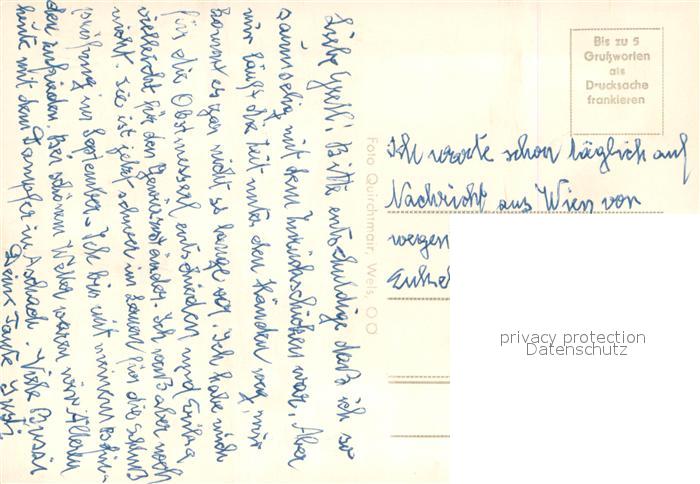 Liebe Gretl! Bitte entschuldige daß ich so
saumselig mit dem Zurückschicken war. Aber
mir läuft die Zeit unter den Händen weg, mir
kommt es gar nicht so lange vor. Ich habe mich
für die Obstmesserl entschieden und Entlag
vielleicht für den Gewürzständer. Ich weiß aber noch
nicht. Sie ist jetzt schwer im Lernen für die Schluß
prüfung im September. Ich bin mit meinem Befin-
den zufrieden. Bei schönem Wetter waren wir Älteren
heute mit dem Dampfer in Aschach. Viele Bussi
Deine Tante
Foto Quirchtmair, Wels, OÖ
Bis zu 5
Grußworten
als
Drucksache
frankieren
Ich warte schon täglich auf
Nachricht aus Wien von
wegen
privacy protection
Datenschutz